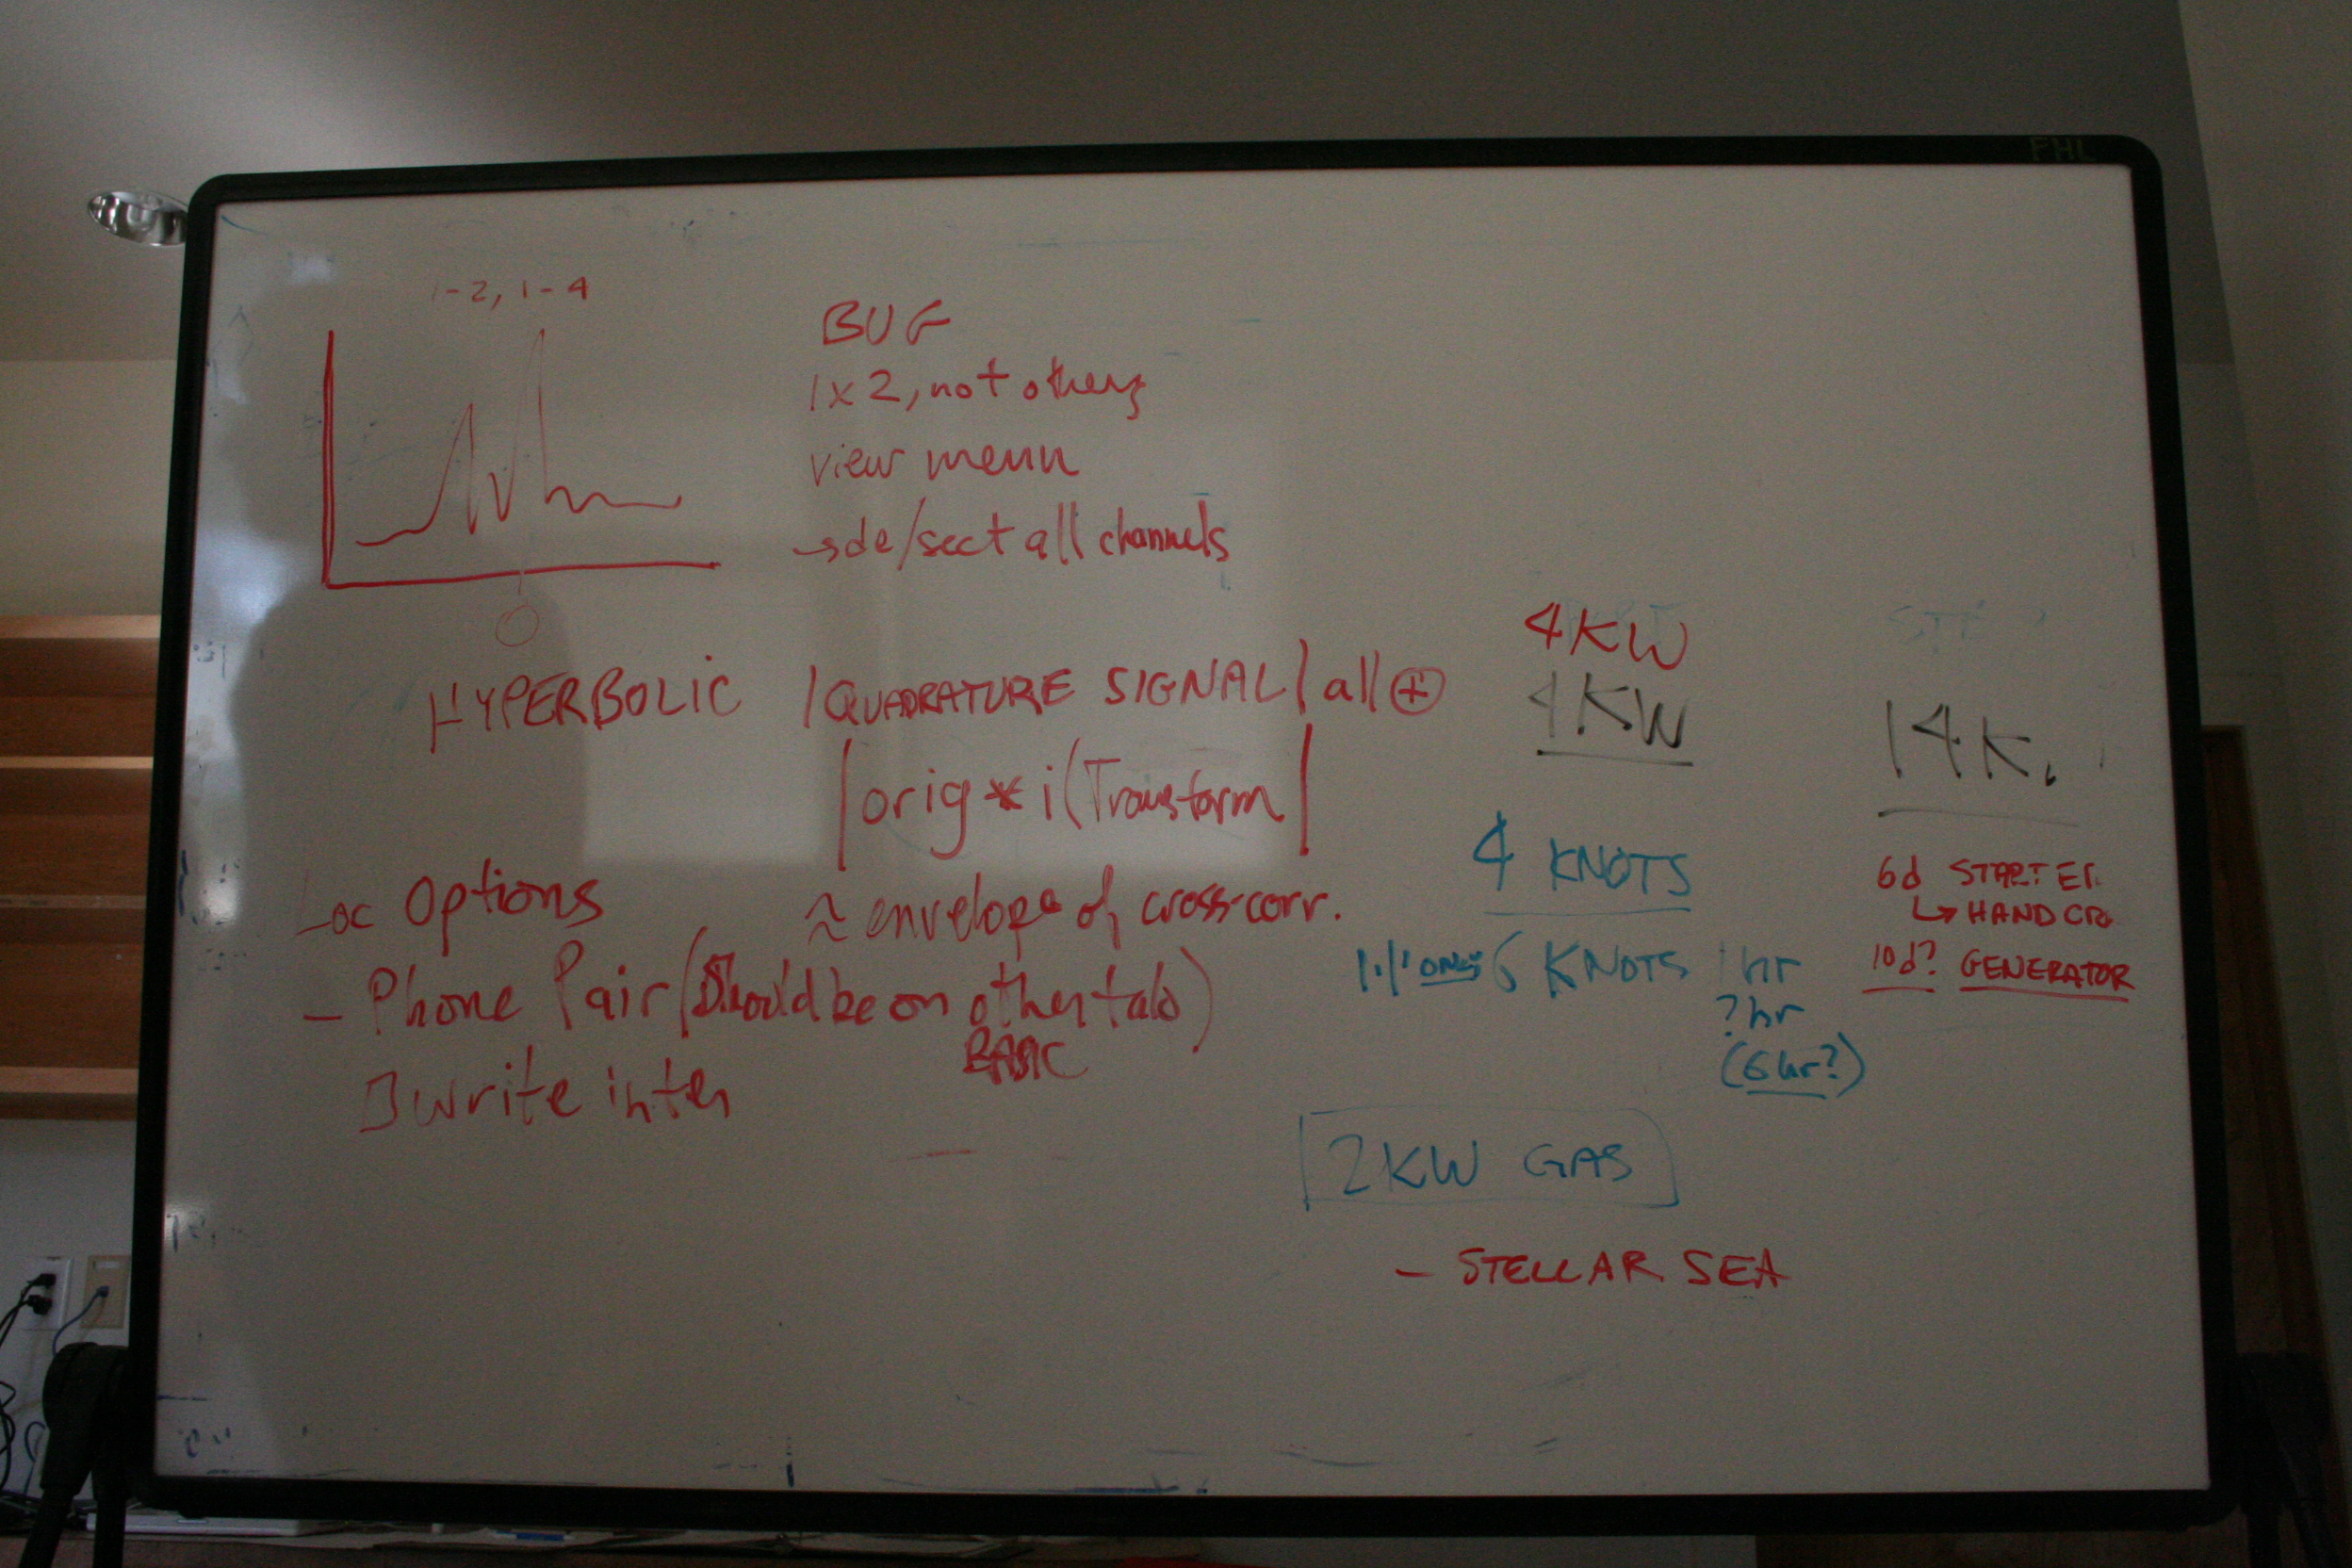 FHL
1-2, 1-4
BUG
1x2, not others
view menu
→de/sect all channels
HYPERBOLIC |QUADRATURE SIGNAL| all ⊕
|orig * i(Transform|
≈ envelope of cross-corr.
Loc Options
- Phone Pair (Should be on other tab)
BASIC
write inter
4KW
4KW
4 KNOTS
ONLY 6 KNOTS 1hr
?hr
(6hr?)
2KW GAS
- STELLAR SEA
14K
6d STARTER
↳ HAND CR
10d? GENERATOR